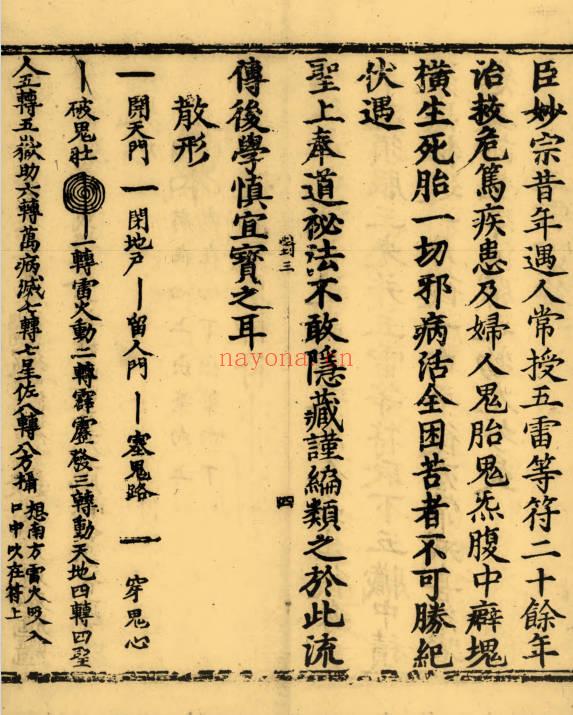 臣妙宗昔年遇人常授五雷等符二十餘年
治救危篤疾患及婦人鬼胎鬼炁腹中癖塊
橫生死胎一切邪病活全困苦者不可勝紀
伏遇
聖上奉道祕法不敢隱藏謹編類之於此流
三 四
傳後學慎宜寶之耳
散形
一開天門 一閉地戶 丨留人門 丨塞鬼路 一 穿鬼心
丨破鬼肚 一轉雷火動二轉霹靂發三轉動天地四轉四聖
人五轉五嶽助六轉萬病滅七轉七星佐八轉八方攝
想南方雷火吸入
口中吹在符上
nayona.cn